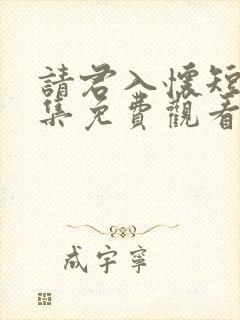 請君入懷短
集免費觀看
成宇寧